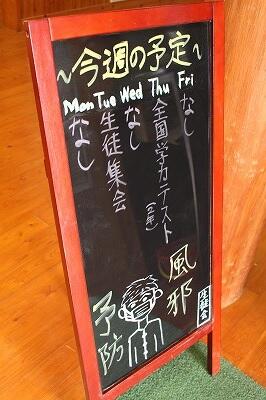 ~今週の予定~
Mon Tue Wed Thu Fri
なし
生徒集会
なし
全国学力テスト
なし
風邪
予防